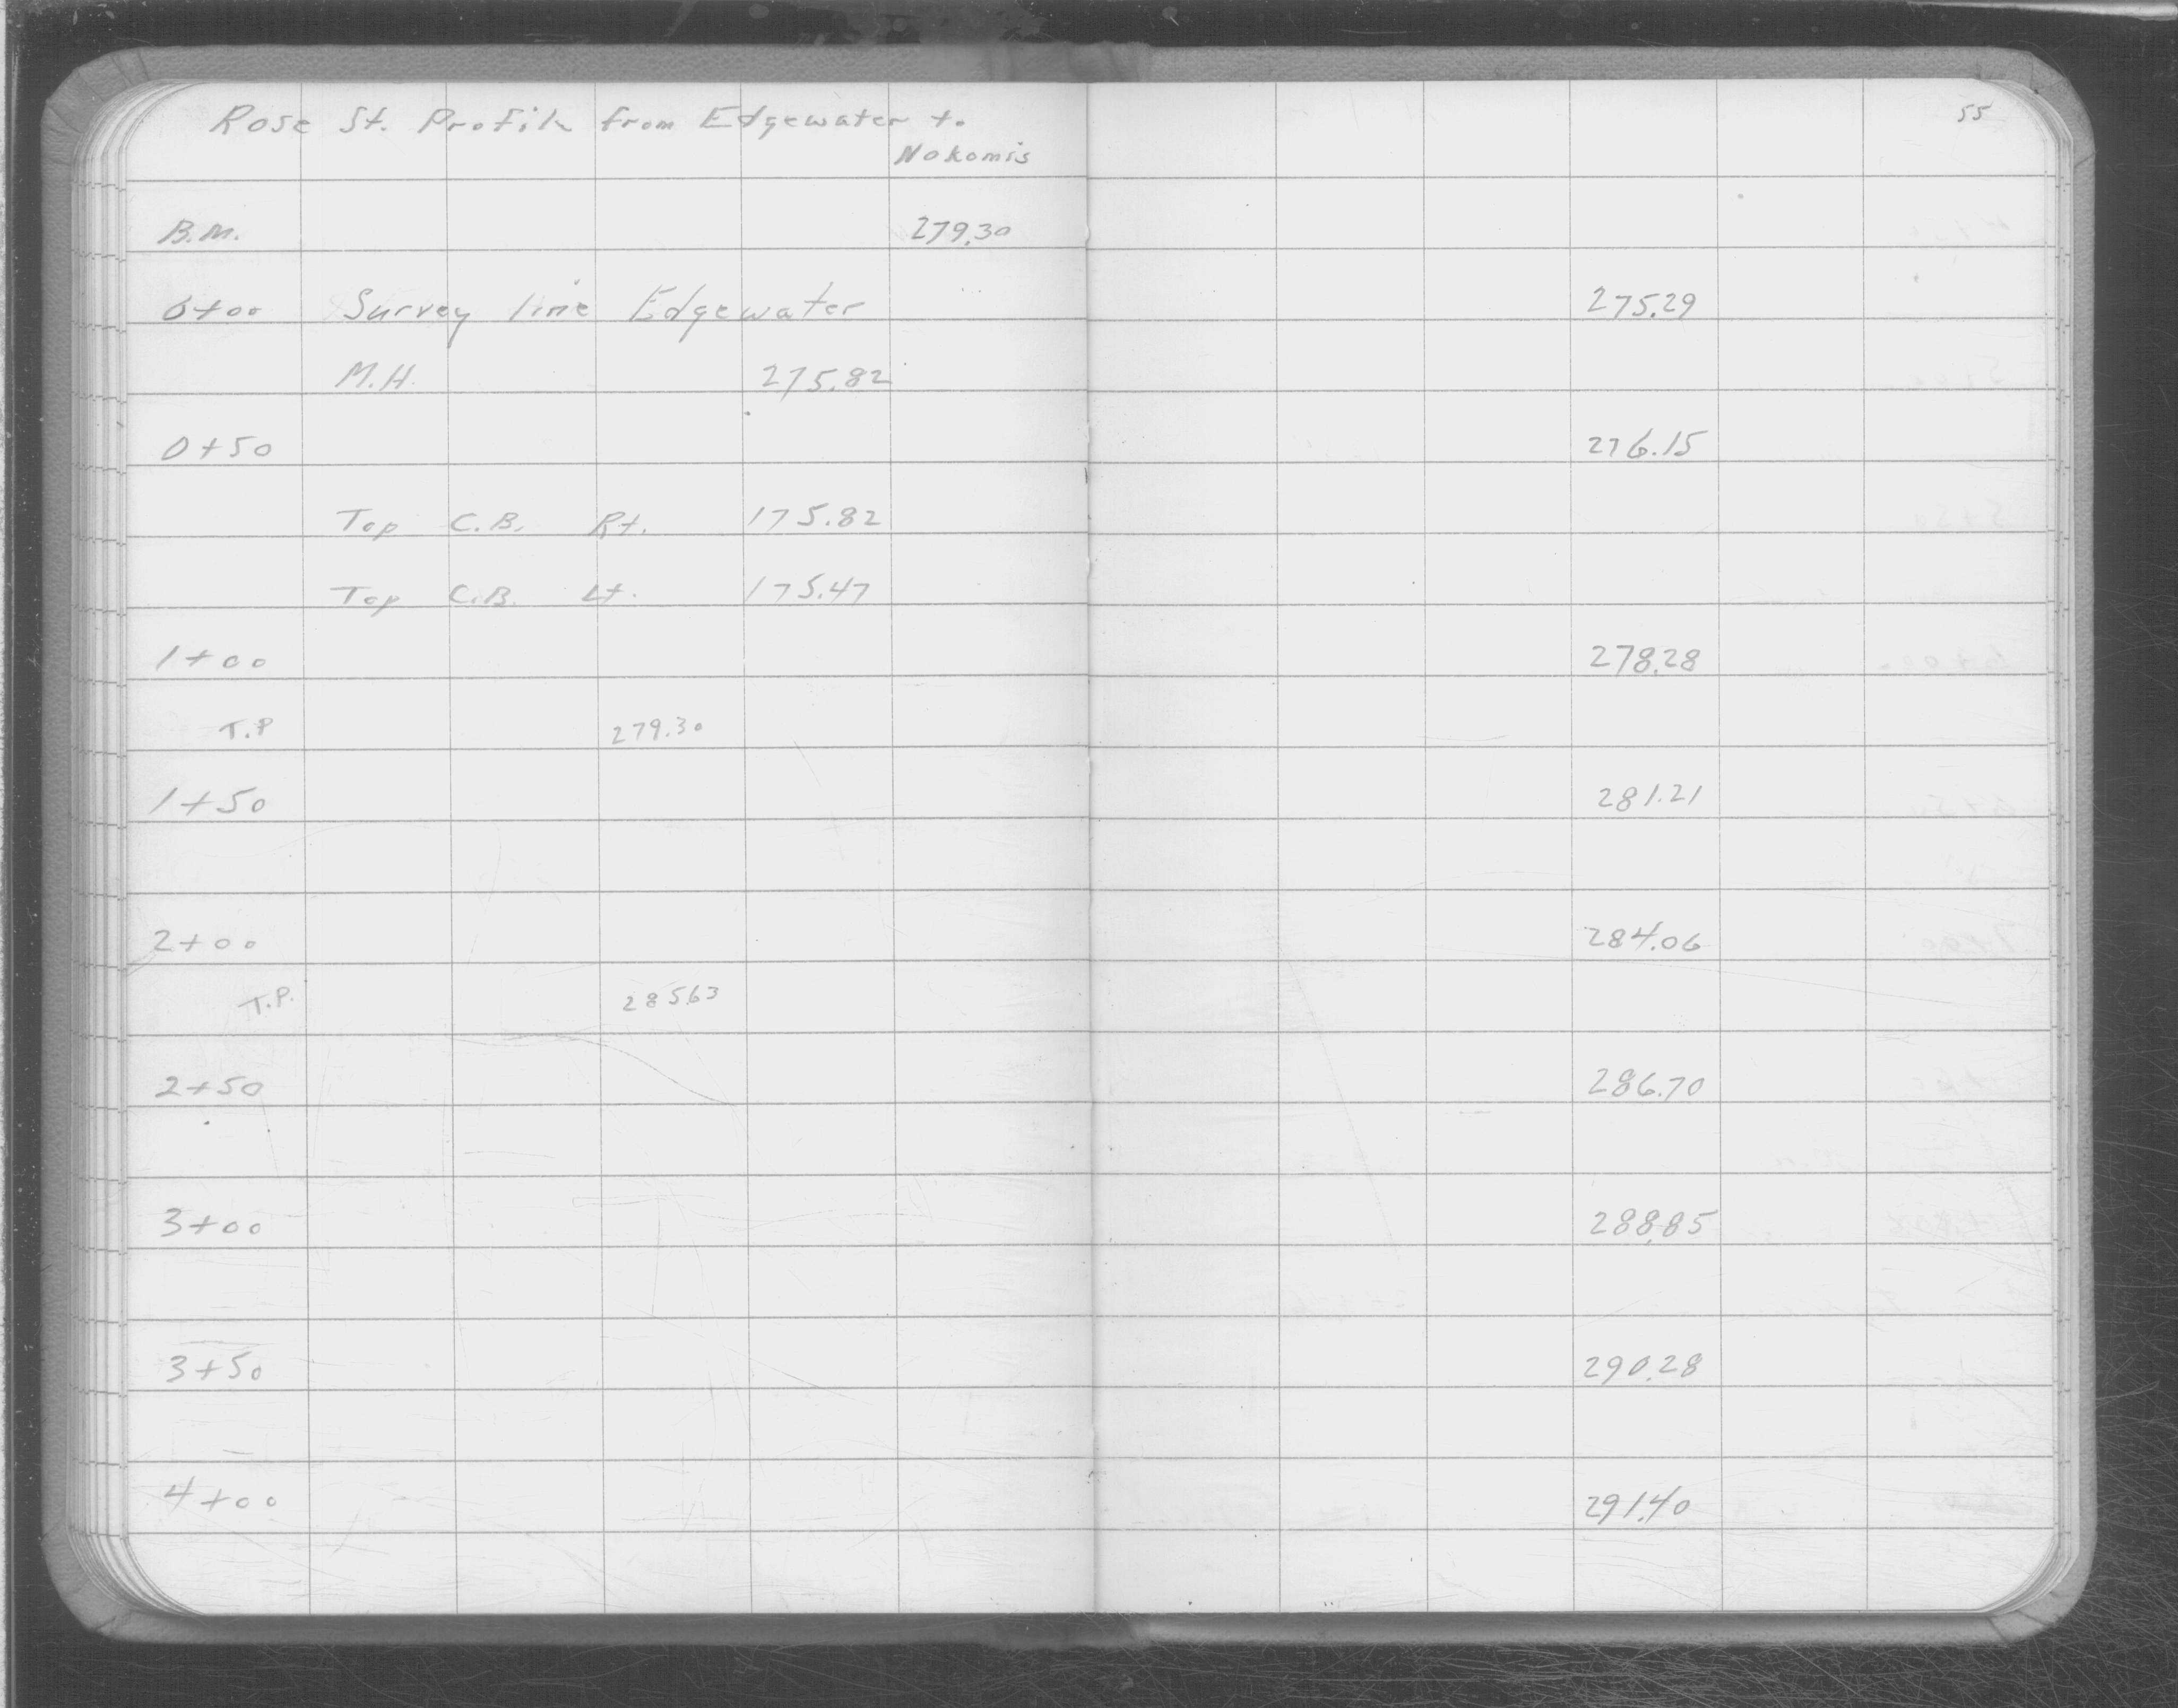 55
Rose St. Profile from Edgewater to
Nokomis
B.M. 279.30
0+00 Survey line Edgewater 275.29
M.H. 275.82
0+50 276.15
Top C.B. Rt. 175.82
Top C.B. Lt. 175.47
1+00 278.28
T.P 279.30
1+50 281.21
2+00 284.06
T.P. 285.63
2+50 286.70
3+00 288.85
3+50 290.28
4+00 291.40